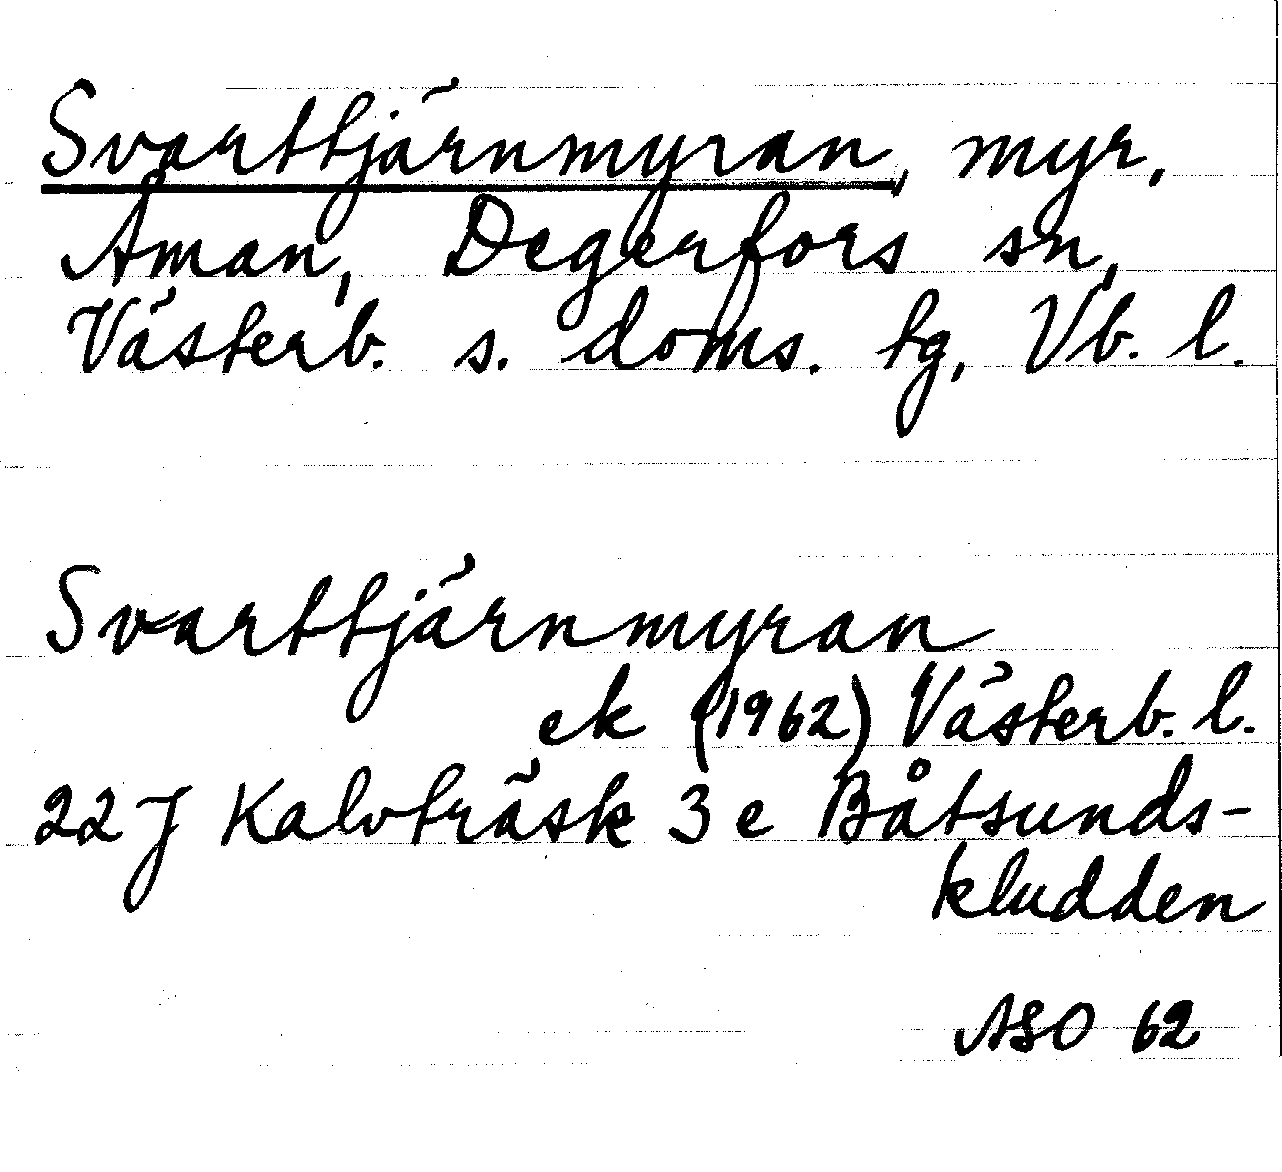 Svarttjärnmyran, myr,
Åman, Degerfors sn,
Västerb. s. doms. tg, Vb. l.
Svarttjärnmyran
ek (1962) Västerb. l.
22 J Kalvträsk 3 e Båtsunds-
kludden
ASO 62